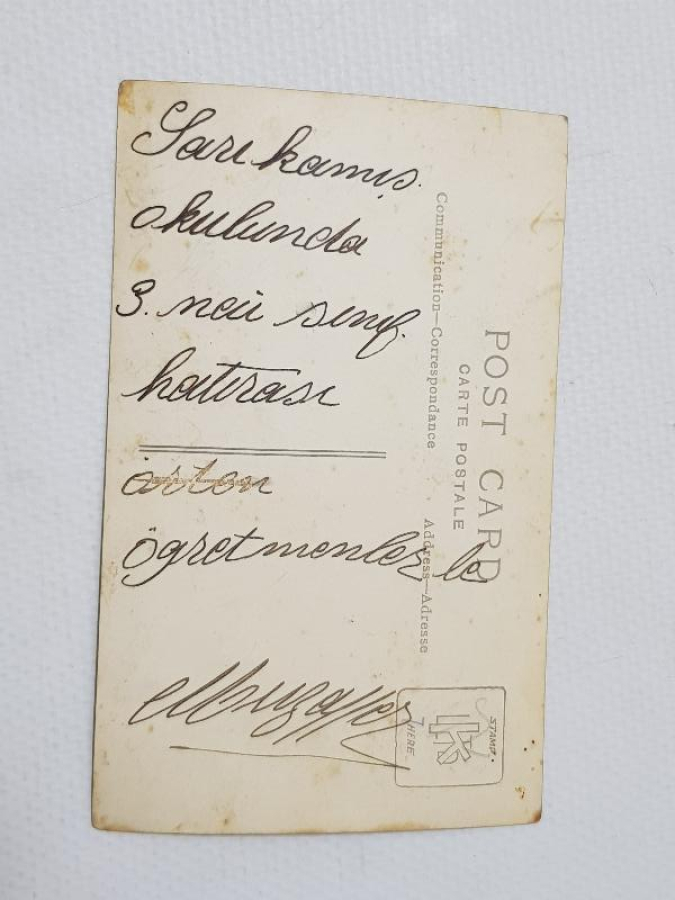 Sarıkamış.
okulunda
3. ncü sınıf.
hatırası
öğretmenler le
Muzaffer
POST CARD
CARTE POSTALE
Communication—Correspondance
Address—Adresse
STAMP
HERE